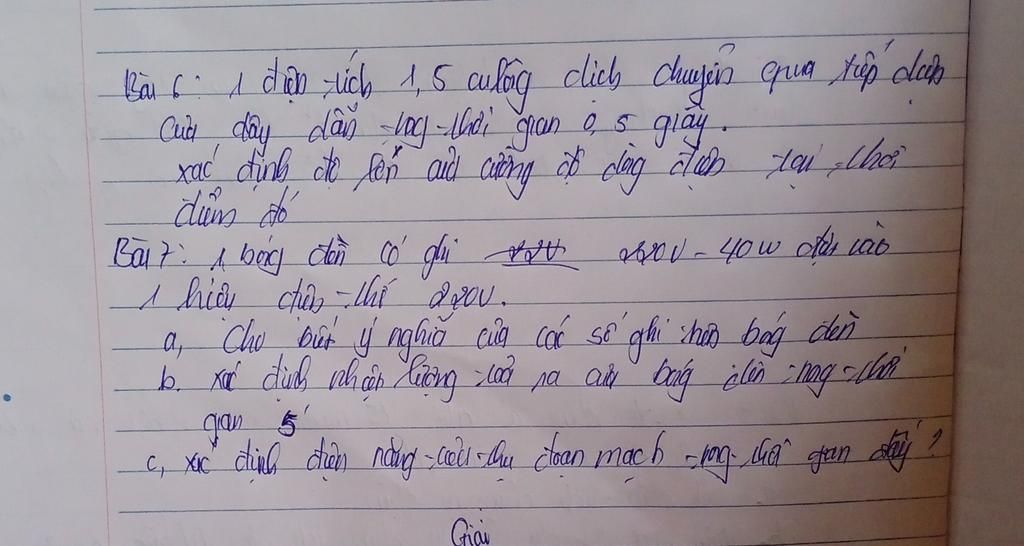 Bài 6: 1 điện tích 1,5 culông dịch chuyển qua tiếp diện
của dây dẫn trog thời gian 0,5 giây.
xác định độ lớn của cường độ dòng điện tại thời
điểm đó
Bài 7: 1 bóng đèn có ghi 220V - 40W đặt vào
1 hiệu điện thế 220V.
a, Cho biết ý nghĩa của các số ghi trên bóg đèn
b. xác định nhiệt lượng toả ra của bóg đèn trog thời
gian 5'
c, xác định điện năng tiêu thụ đoạn mạch trog thời gian đấy?
Giải